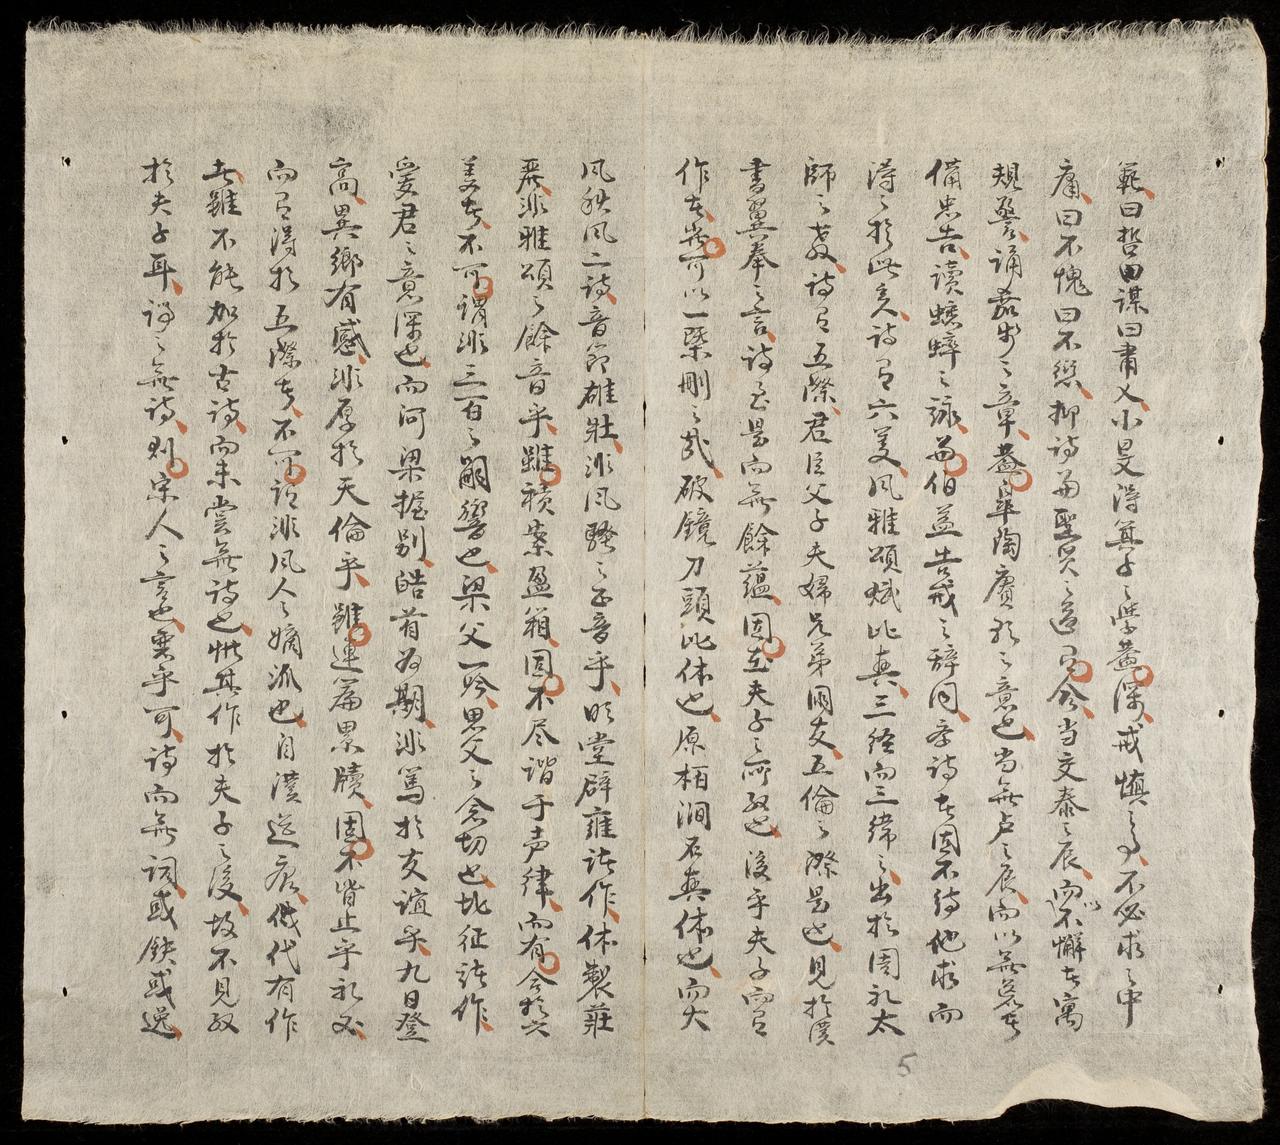 範曰哲曰謀曰肅乂小旻得箕子之學益深戒慎之事不必求之中
庸曰不愧曰不愆抑詩當聖賢之道又今當交泰之辰而不懈者寓
規警誦嘉歩之章益皐陶賡歌之意也當無虞之辰而以無荒者
備忠告讀蟋蟀之詠當伯益告戒之辞同學詩者固不待他求而
得之於此矣詩有六美風雅頌賦比興三經而三緯之出於周礼太
師之教詩有五際君臣父子夫婦兄弟朋友五倫之際是也見於漢
書翼奉之言詩至是而無餘蘊固在夫子之所取也後乎夫子而有
作者豈可以一槩刪之哉破鏡刀頭比体也原栢澗石興体也而大
風秋風二詩音節雄壯非風騷之正音乎明堂辟雍諸作体製莊
嚴非雅頌之餘音乎雖積案盈箱固不尽諧于声律而有合於六
美者不可謂非三百之嗣響也梁父一吟思父之念切也北征諸作
愛君之意深也而河梁握别皓首為期非篤於友誼乎九日登
高異郷有感非厚於天倫乎雖連篇累牘固不皆止乎礼義
而有得於五際者不可謂非風人之嫡派也自漢迄唐代代有作
者雖不能加於古詩而未嘗無詩也惟其作於夫子之後故不見取
於夫子耳謂之無詩則宋人之言也烏乎可詩而無詞或缺或逸
5